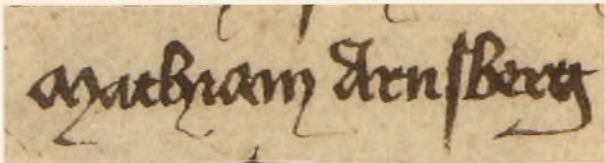 Mathiam Arnsberg